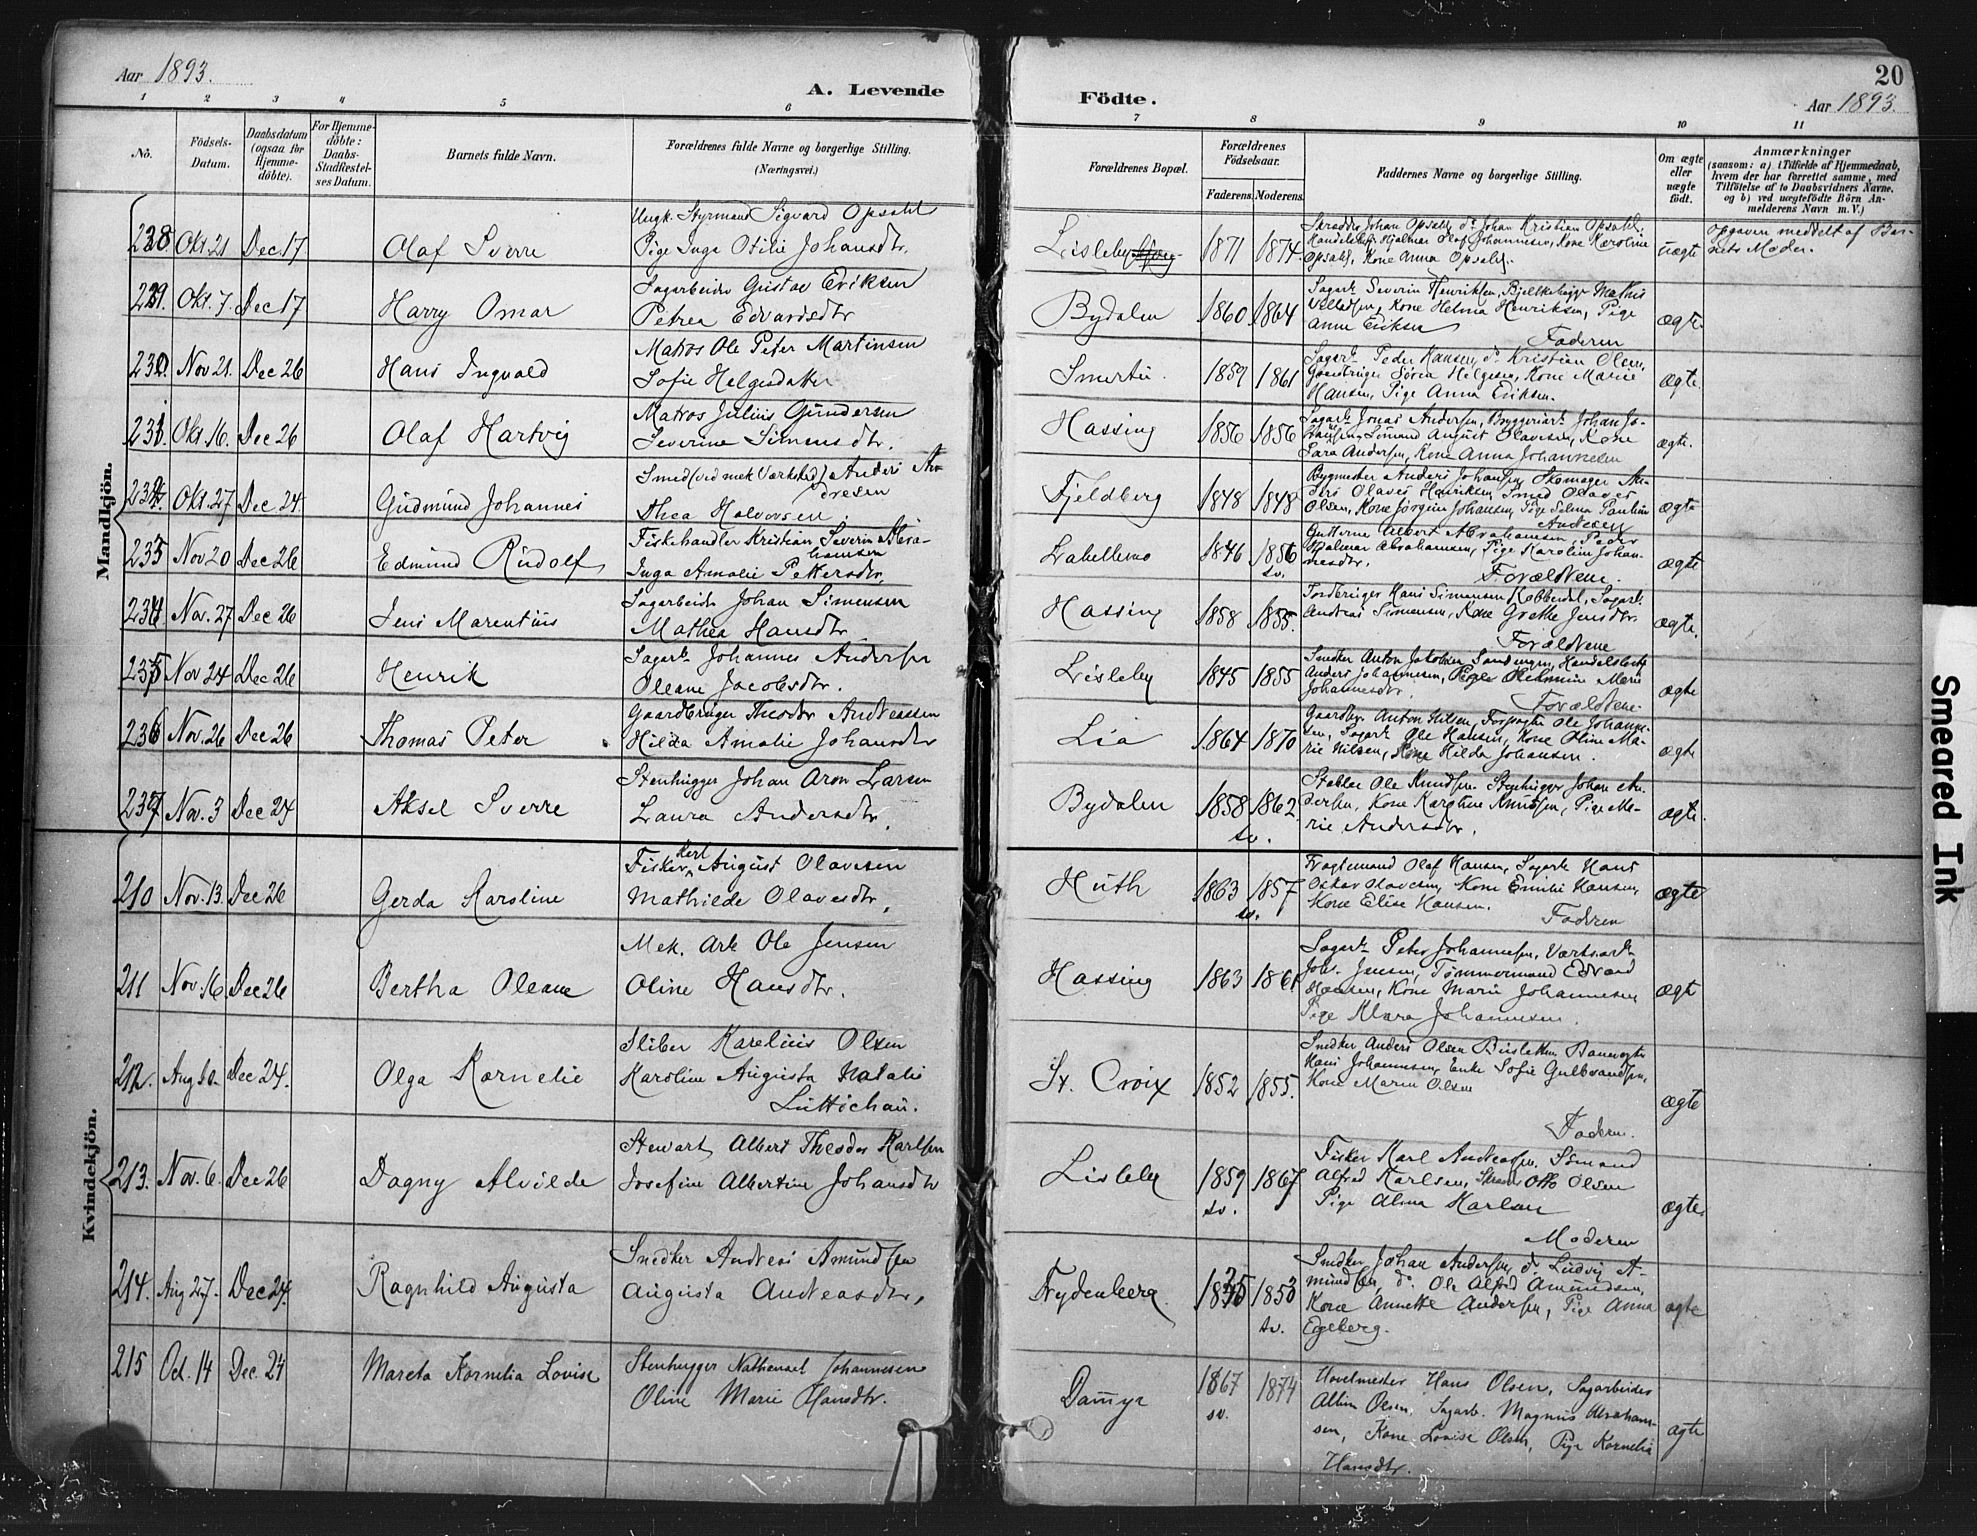 Aar 1893.
A. Levende Födte.
20
Aar 1893.
1 2 3 4 5 6 7 8 9 10 11
No.
Födsels-
Datum.
Daabsdatum
(ogsaa for
Hjemme-
döbte).
For Hjemme-
döbte:
Daabs-
Stadfæstel-
ses Datum.
Barnets fulde Navn.
Forældrenes fulde Navne og borgerlige Stilling.
(Næringsvei.)
Forældrenes Bopæl.
Forældrenes
Födselsaar.
Faderens. Moderens.
Faddernes Navne og borgerlige Stilling.
Om ægte
eller
uægte
födt.
Anmærkninger
(saasom: a) i Tilfælde af Hjemmedaab,
hvem der har forrettet samme, med
Tilföielse af to Daabsvidners Navne,
og b) ved uægtefödte Börn An-
melderens Navn m. V.)
Mandkjön.
228 Okt. 21 Dec 17
Olaf Sverre
Ungk. Styrmand Sigvard Opsahl
Pige Inga Otilie Johansdtr.
Lisleby
1871 1874
Johan Opsahl, do Johan Kristian Opsahl,
Hjalmar Olaf Johannesen, Kone Karoline
Opsahl, Kone Anna Opsahl.
uægte
Opgaven meddelt af Bar-
nets Moder.
229. Okt. 7. Dec 17
Harry Omar
Sagarbeider Gustav Eriksen
Petrea Edvardsdtr
Bydalen
1860 1864
Sagarb. Severin Henriksen, Mathis
Kone Helma Henriksen, Pige
Anne Eriksen
Faderen
ægte
230. Nov 21. Dec 26
Hans Ingvald
Matros Ole Peter Martinsen
Sofie Helgesdatter
Smertu.
1859 1861
Sagarb. Peder Hansen, do Kristian Olsen,
Gaardbruger Søren Helgesen, Kone Marie
Hansen, Pige Anna Eriksen.
ægte.
231. Okt. 16. Dec 26
Olaf Hartvig
Matros Julius Gundersen
Severine Simensdtr.
Hassing
1856 1856
Sagarb. Jonas Andersen, Bryggeriarb. Johan Jo-
Sömand August Olavesen, Kone
Sara Andersen, Kone Anna Johannesen
ægte.
232. Okt. 27 Dec 24.
Gudmund Johannes
Smed (ved mek Værksted) Anders An-
dresen
Thea Halvorsen.
Fjeldberg
1848 1848
Bygmester Anders Johansen, Skomager An-
ders Olaves Henriksen, Smed Olaves
Olsen, Kone Jörgine Johansen, Pige Selma Pauline
Andresen
ægte
233 Nov 20 Dec 26
Edmund Rudolf
Fiskehandler Kristian Severin Abra-
hamsen
Inga Amalie Pettersdtr.
Labellemo
1846 1856
sv.
Gutterne Albert Abrahamsen, Peder
Hjalmar Abrahamsen, Pige Karoline Johan-
nesdtr.
Forældrene.
ægte
234 Nov. 27 Dec 26
Jens Marentius
Sagarbeider Johan Simensen
Mathea Hansdtr.
Hassing
1858 1855.
Jordbruger Hans Simensen Kobberdal, Sagarb.
Andreas Simensen, Kone Grethe Jensdtr.
Forældrene
ægte.
235 Nov 24 Dec 26
Henrik
Sagarb. Johannes Andersen
Oleane Jacobsdtr.
Lisleby
1845 1855
Snedker Anton Jakobsen Sandengen, Handelsbetj.
Anders Johannesen, Pige Marie
Johannesdtr.
Forældrene.
ægte
236 Nov. 26 Dec 26
Thomas Peter
Gaardbruger Theodor Andreassen
Hilda Amalie Johansdtr
Lia
1864 1870
Gaardbr. Anton Nilsen, Forpagter Ole Johanne-
sen, Sagarb. Ole Hansen, Kone Oline Ma-
rie Nilsen, Kone Hilda Johansen.
ægte
237 Nov. 3 Dec 24
Aksel Sverre
Stenhugger Johan Aron Larsen
Laura Andersdtr.
Bydalen
1858 1862.
sv.
Ole Knudsen, Stenhugger Johan An-
dersen, Kone Karoline Knudsen, Pige Ma-
rie Andersdtr.
ægte.
Kvindekjön.
210 Nov. 13. Dec 26
Gerda Karoline
Fisker Karl August Olavesen
Mathilde Olavesdtr.
Huth
1863 1857
sv.
Fragtemand Olaf Hansen, Sagarb. Hans
Oskar Olavesen, Kone Emilie Hansen,
Kone Elise Hansen.
Faderen
ægte
211 Nov. 16. Dec 26
Bertha Oleane
Mek. Arb. Ole Jensen
Oline Hansdtr.
Hassing
1863 1861
Sagarb. Peter Johannesen, Værksarb.
Johs. Jensen, Tømmermand Edvard
Hansen, Kone Marie Johannesen
Pige Klara Johannesen.
ægt
212. Aug 30. Dec 24.
Olga Kornelie
Sliber Karelius Olsen
Karoline Augusta Natali
Lüttichau.
St. Croix
1852 1855.
Snedker Anders Olsen Banevogter
Hans Johannesen, Enke Sofie Gulbrandsen,
Kone Maren Olsen
Faderen.
ægte
213. Nov. 6. Dec 26
Dagny Alvilde
Stewart Albert Theodor Karlsen
Josefine Albertine Johansdtr
Lisleby
1859 1867
sv.
Fisker Karl Andreasen, Sömand
Alfred Karlsen, Otto Olsen
Pige Alma Karlsen
Moderen
ægte
214. Aug 27. Dec 24.
Ragnhild Augusta
Snedker Andreas Amundsen
Augusta Andreasdtr.
Nydenberg
1853
sv.
Snedker Johan Andersen, do Ludvig A-
mundsen, do. Ole Alfred Amundsen,
Kone Annette Andersen, Pige Anna
Egeberg.
ægte
215 Oct. 14 Dec. 24
Mareta Kornelia Lovise
Stenhugger Nathanael Johannesen
Oline Marie Hansdtr.
Dammyr
1867 1874
sv.
Hövelmester Hans Olsen, Sagarbeider
Albin Olsen, Sagarb. Magnus Abraham-
sen, Kone Lovise Olsen, Pige Kornelia
Hansdtr.
ægte
Smeared Ink